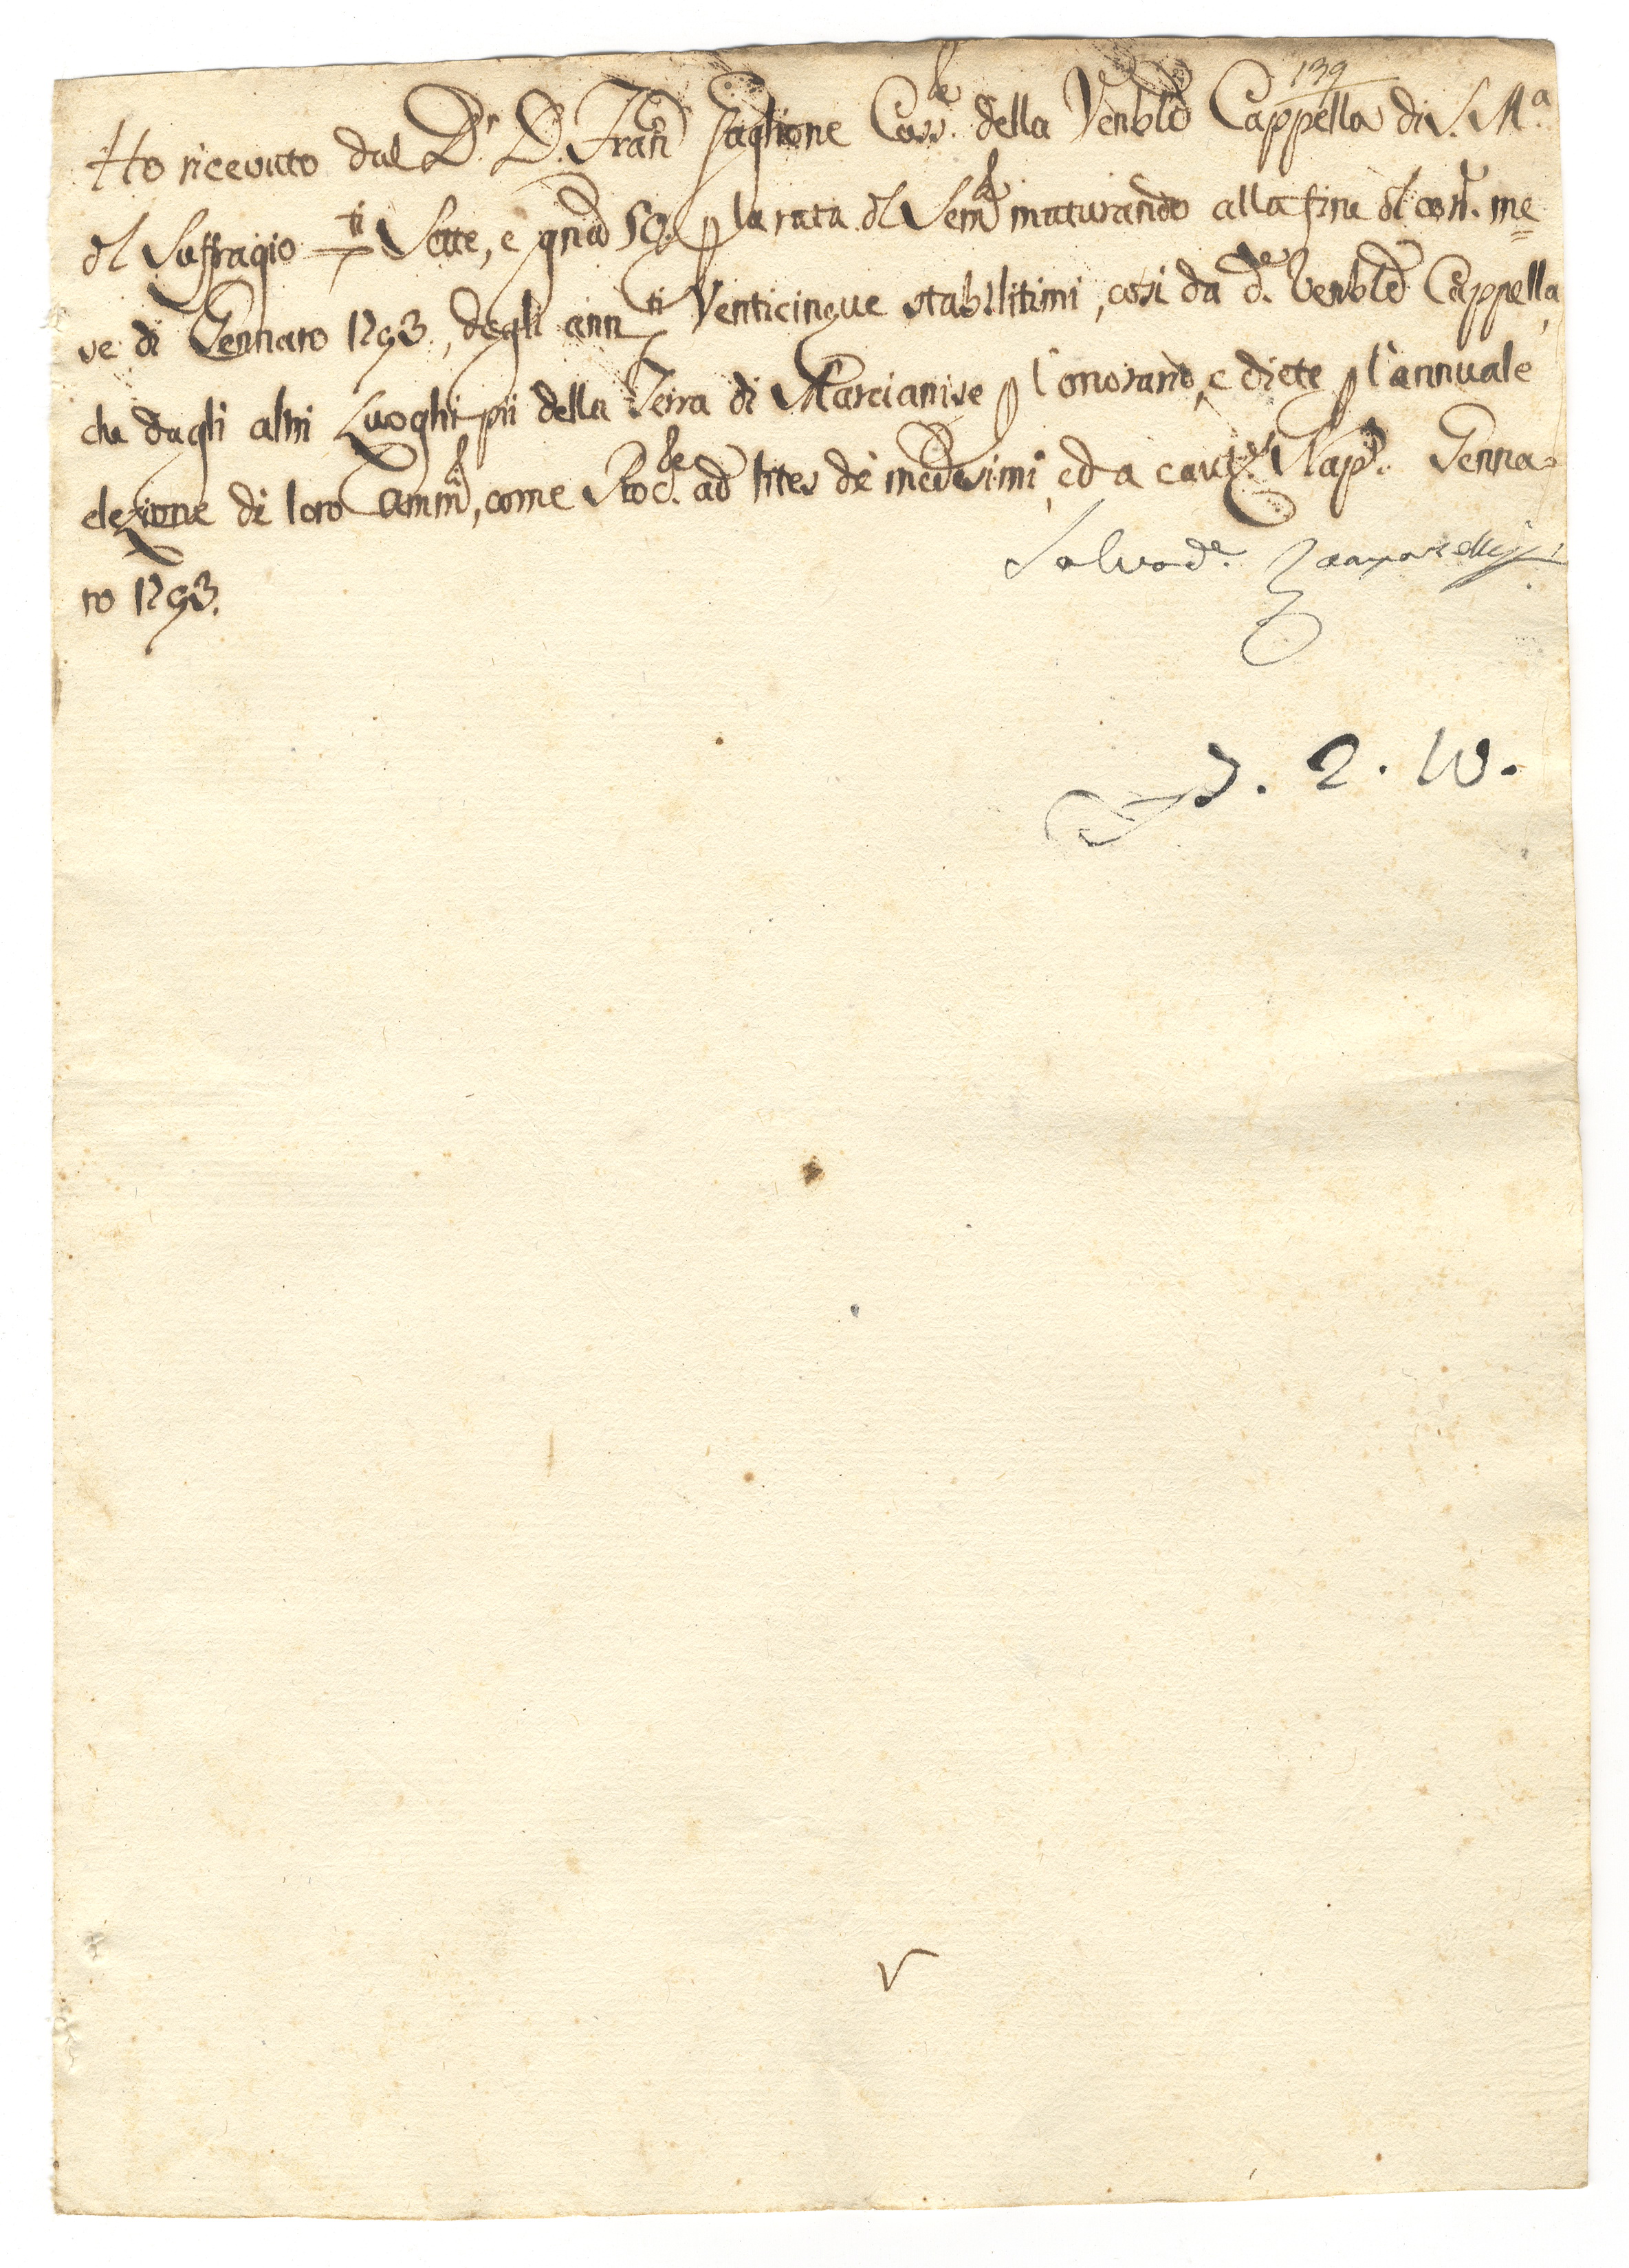 139
Ho ricevuto dal D.r D. Fran Foglione Cass.le della Venble Cappella di S. M.a
dl Suffragio ti Sette, e gna 50. p la rata dl Sem maturando alla fine dl corr. me=
se di Gennaro 1793., degli ann ti Venticinque stabilitimi, cosi da d.a Venble Cappella,
che dagli altri Luoghi pii della Terra di Marcianise p l'onorario, e diete p l'annuale
elezione di loro Amm, come Proc.re ad lites de medesimi, ed a caut. Nap. Genna=
ro 1793.
Salvad.e
7. 2. 10.